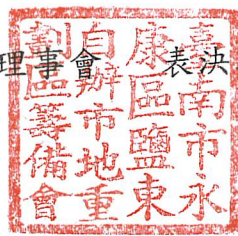 理事會 表決
臺南市永
康區鹽東
自辦市地重
劃區籌備會